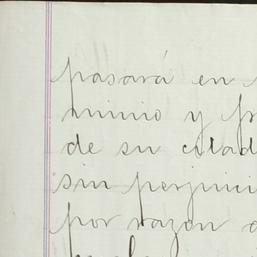 pasará en
minio y
de su citad
sin perjuici
por razon